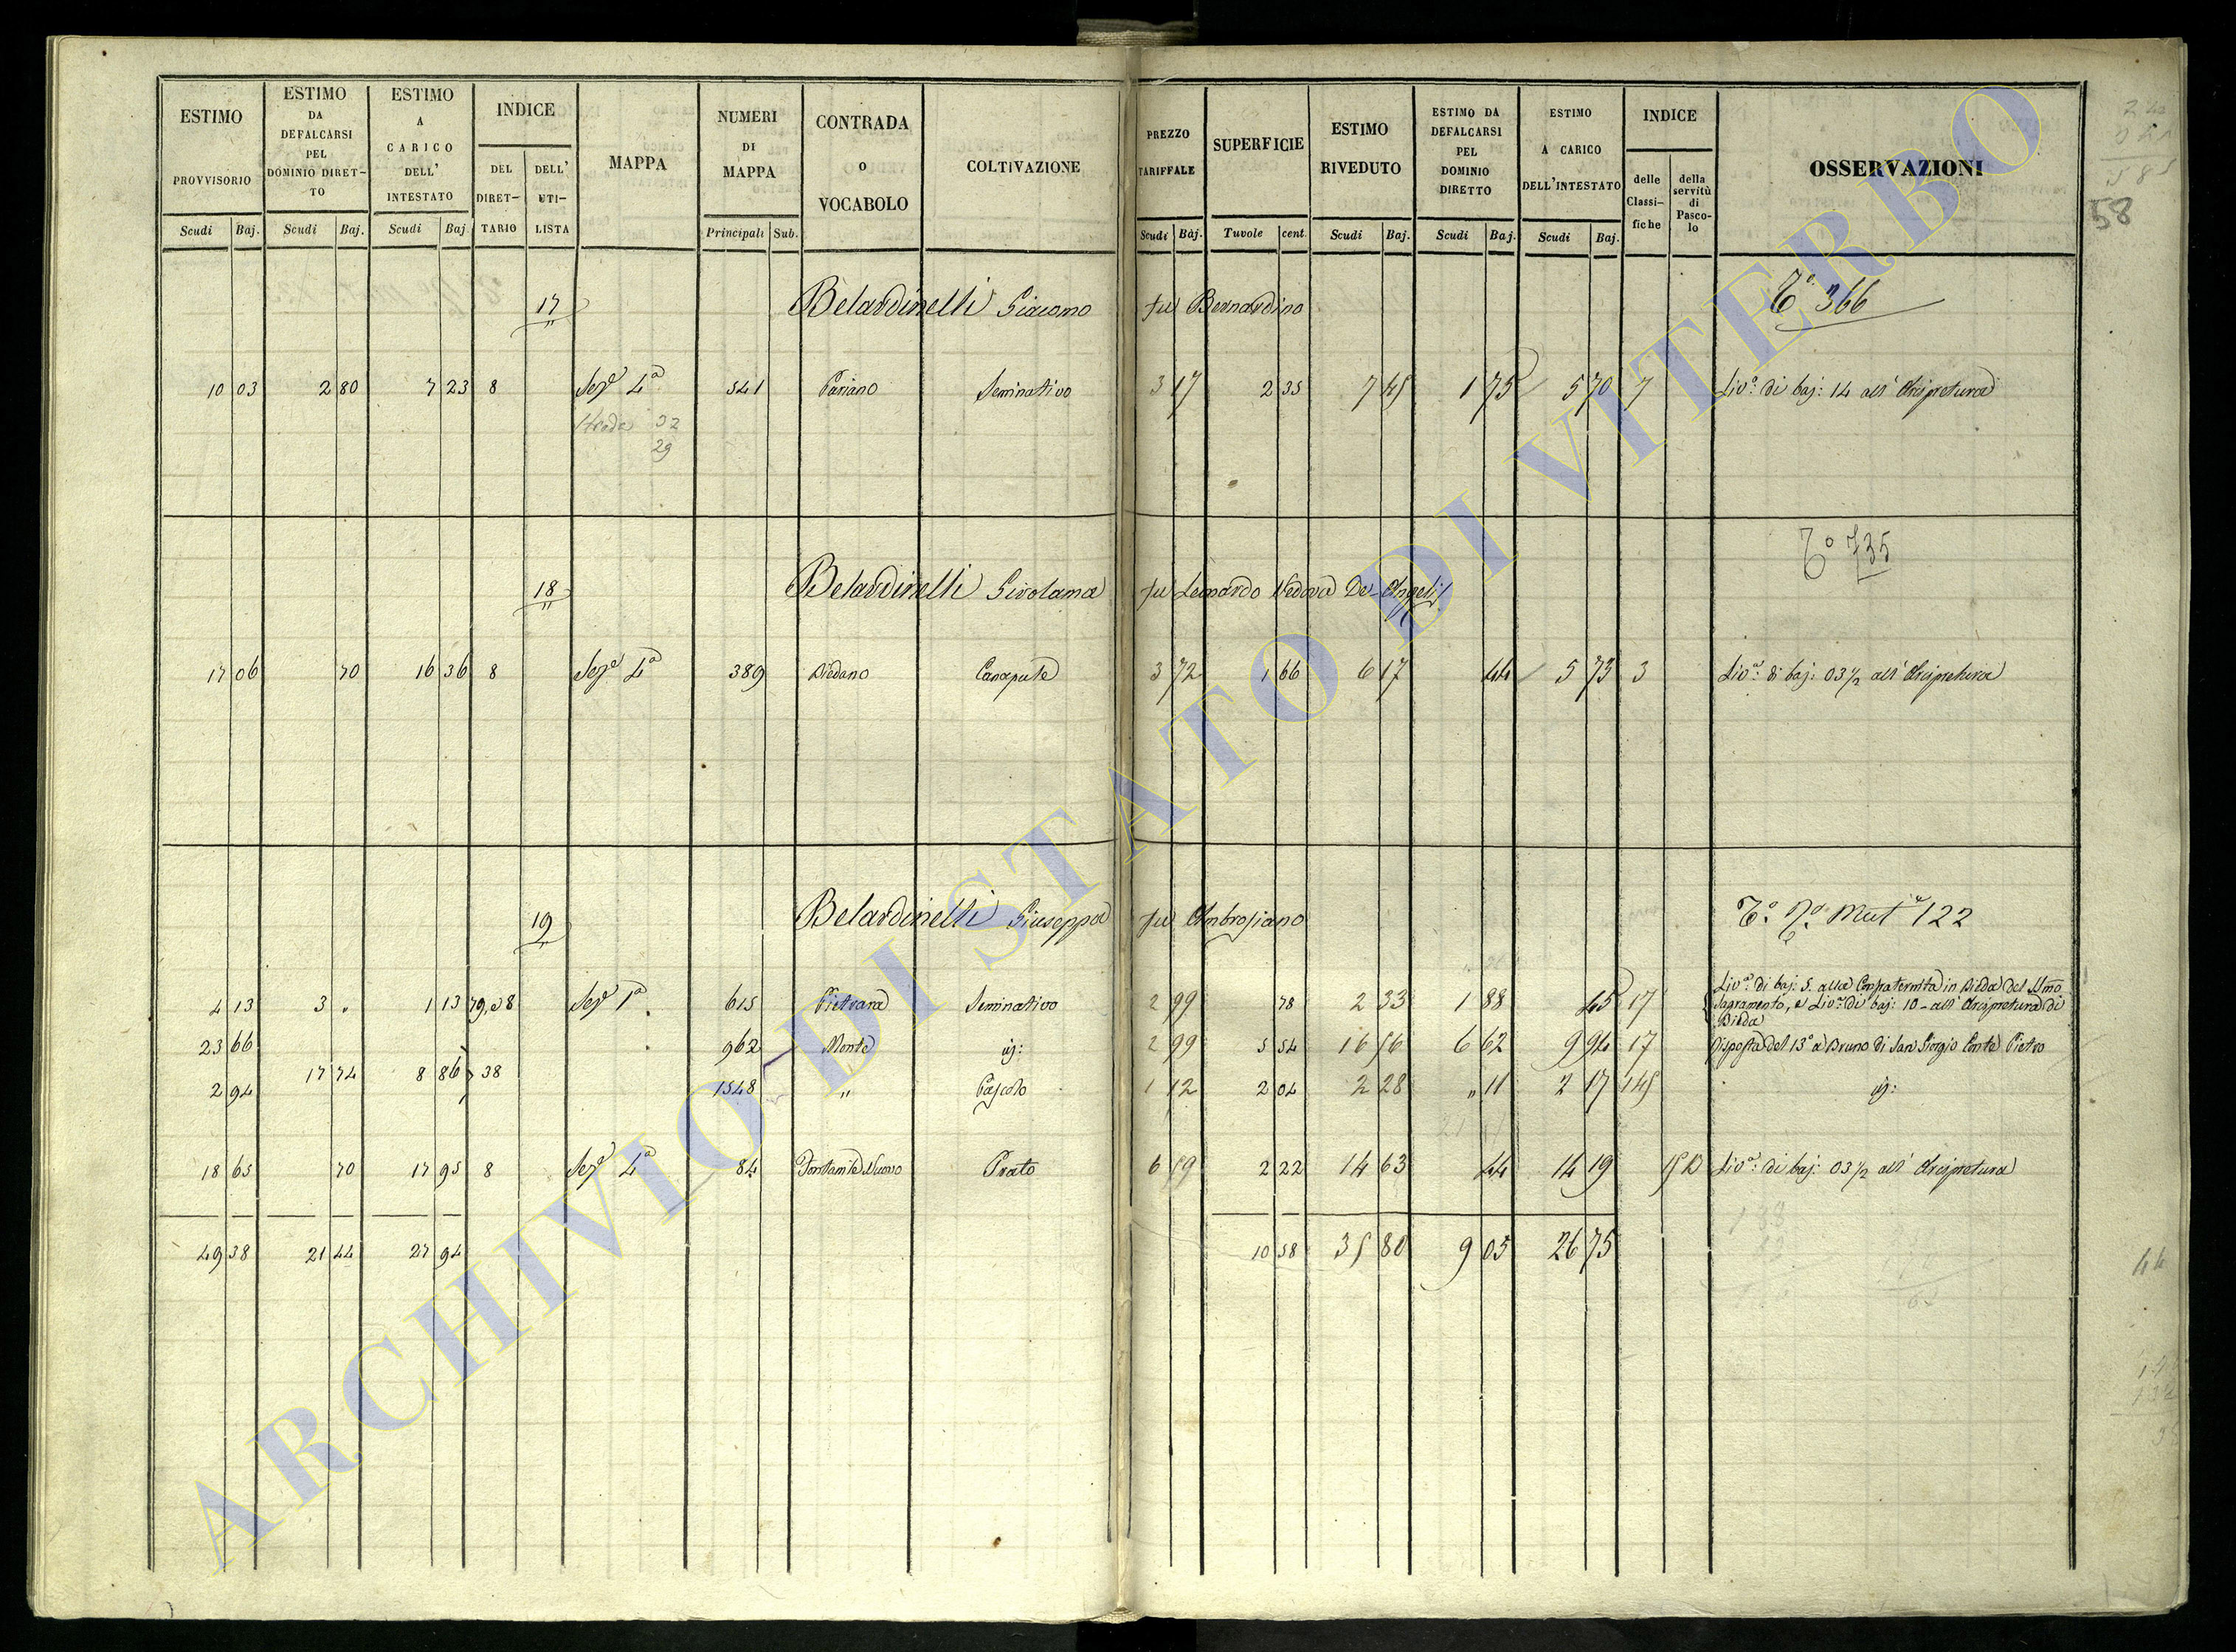 ESTIMO PROVVISORIO Scudi Baj.
ESTIMO DA DEFALCARSI PEL DOMINIO DIRET- TO Scudi Baj.
ESTIMO A CARICO DELL' INTESTATO Scudi Baj
INDICE DEL DIRET- TARIO DELL' UTI- LISTA
MAPPA
NUMERI DI MAPPA Principali Sub.
CONTRADA o VOCABOLO
COLTIVAZIONE
PREZZO TARIFFALE Scudi Baj.
SUPERFICIE Tuvole cent.
ESTIMO RIVEDUTO Scudi Baj.
ESTIMO DA DEFALCARSI PEL DOMINIO DIRETTO Scudi Baj.
ESTIMO A CARICO DELL'INTESTATO Scudi Baj.
INDICE delle Classi- fiche della servitù di Pasco- lo
OSSERVAZIONI
58
17 Belardinelli Giacomo fu Bernardino Tº 366
10 03 2 80 7 23 8 Sezª 4ª 541 Pariano Seminativo 3 17 2 35 7 45 1 75 5 70 7 Livº: di baj: 14 all' Arcipretura
Strada 32
29
Tº 735
18 Belardinelli Girolama fu Leonardo Vedova De Angelis
17 06 70 16 36 8 Sezª 4ª 389 Bidano Canapule 3 72 1 66 6 17 44 5 73 3 Livº: di baj: 03½ all' Arcipretura
19 Belardinelli Giuseppa fu Ambrosiano Tº. Mutª 122
4 13 3 " 1 13 79, e 8 Sezª 1ª 615 Pietrara Seminativo 2 99 78 2 33 1 88 45 17 Livª: di baj: 5. alla Confraternita in Bieda del SSmo
Sagramento, e Livº: di baj: 10 - all' Arcipretura di
Bieda
23 66 962 Monte ig: 2 99 5 54 16 56 6 62 9 94 17 Risposta del 13º a Bruno di San Giorgio Conte Pietro
17 74 8 86 38
2 94 1548 " Pascolo 1 12 2 04 2 28 " 11 2 17 145 ig:
18 65 70 17 95 8 Sezª 4ª 84 Fontanile Nuovo Prato 6 59 2 22 14 63 44 14 19 Livº: di baj: 03½ all' Arcipretura
49 38 21 44 27 94 10 58 35 80 9 05 26 75
44
ARCHIVIO DI STATO DI VITERBO